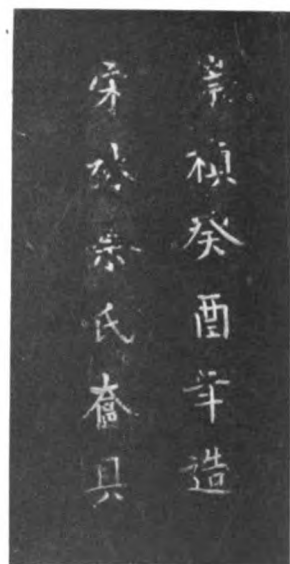 崇禎癸酉年造
宋氏奩具